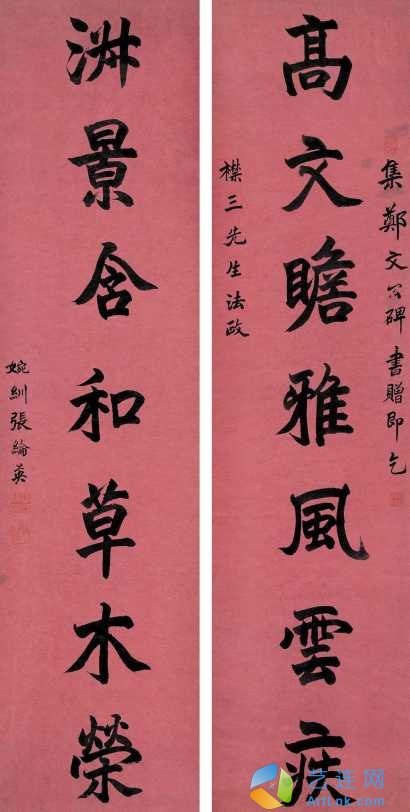 集鄭文公碑書贈即乞
高文瞻雅風雲疾
三先生法政
淑景含和草木榮
婉紃張綸英
艺连网
ArtLnk.Com